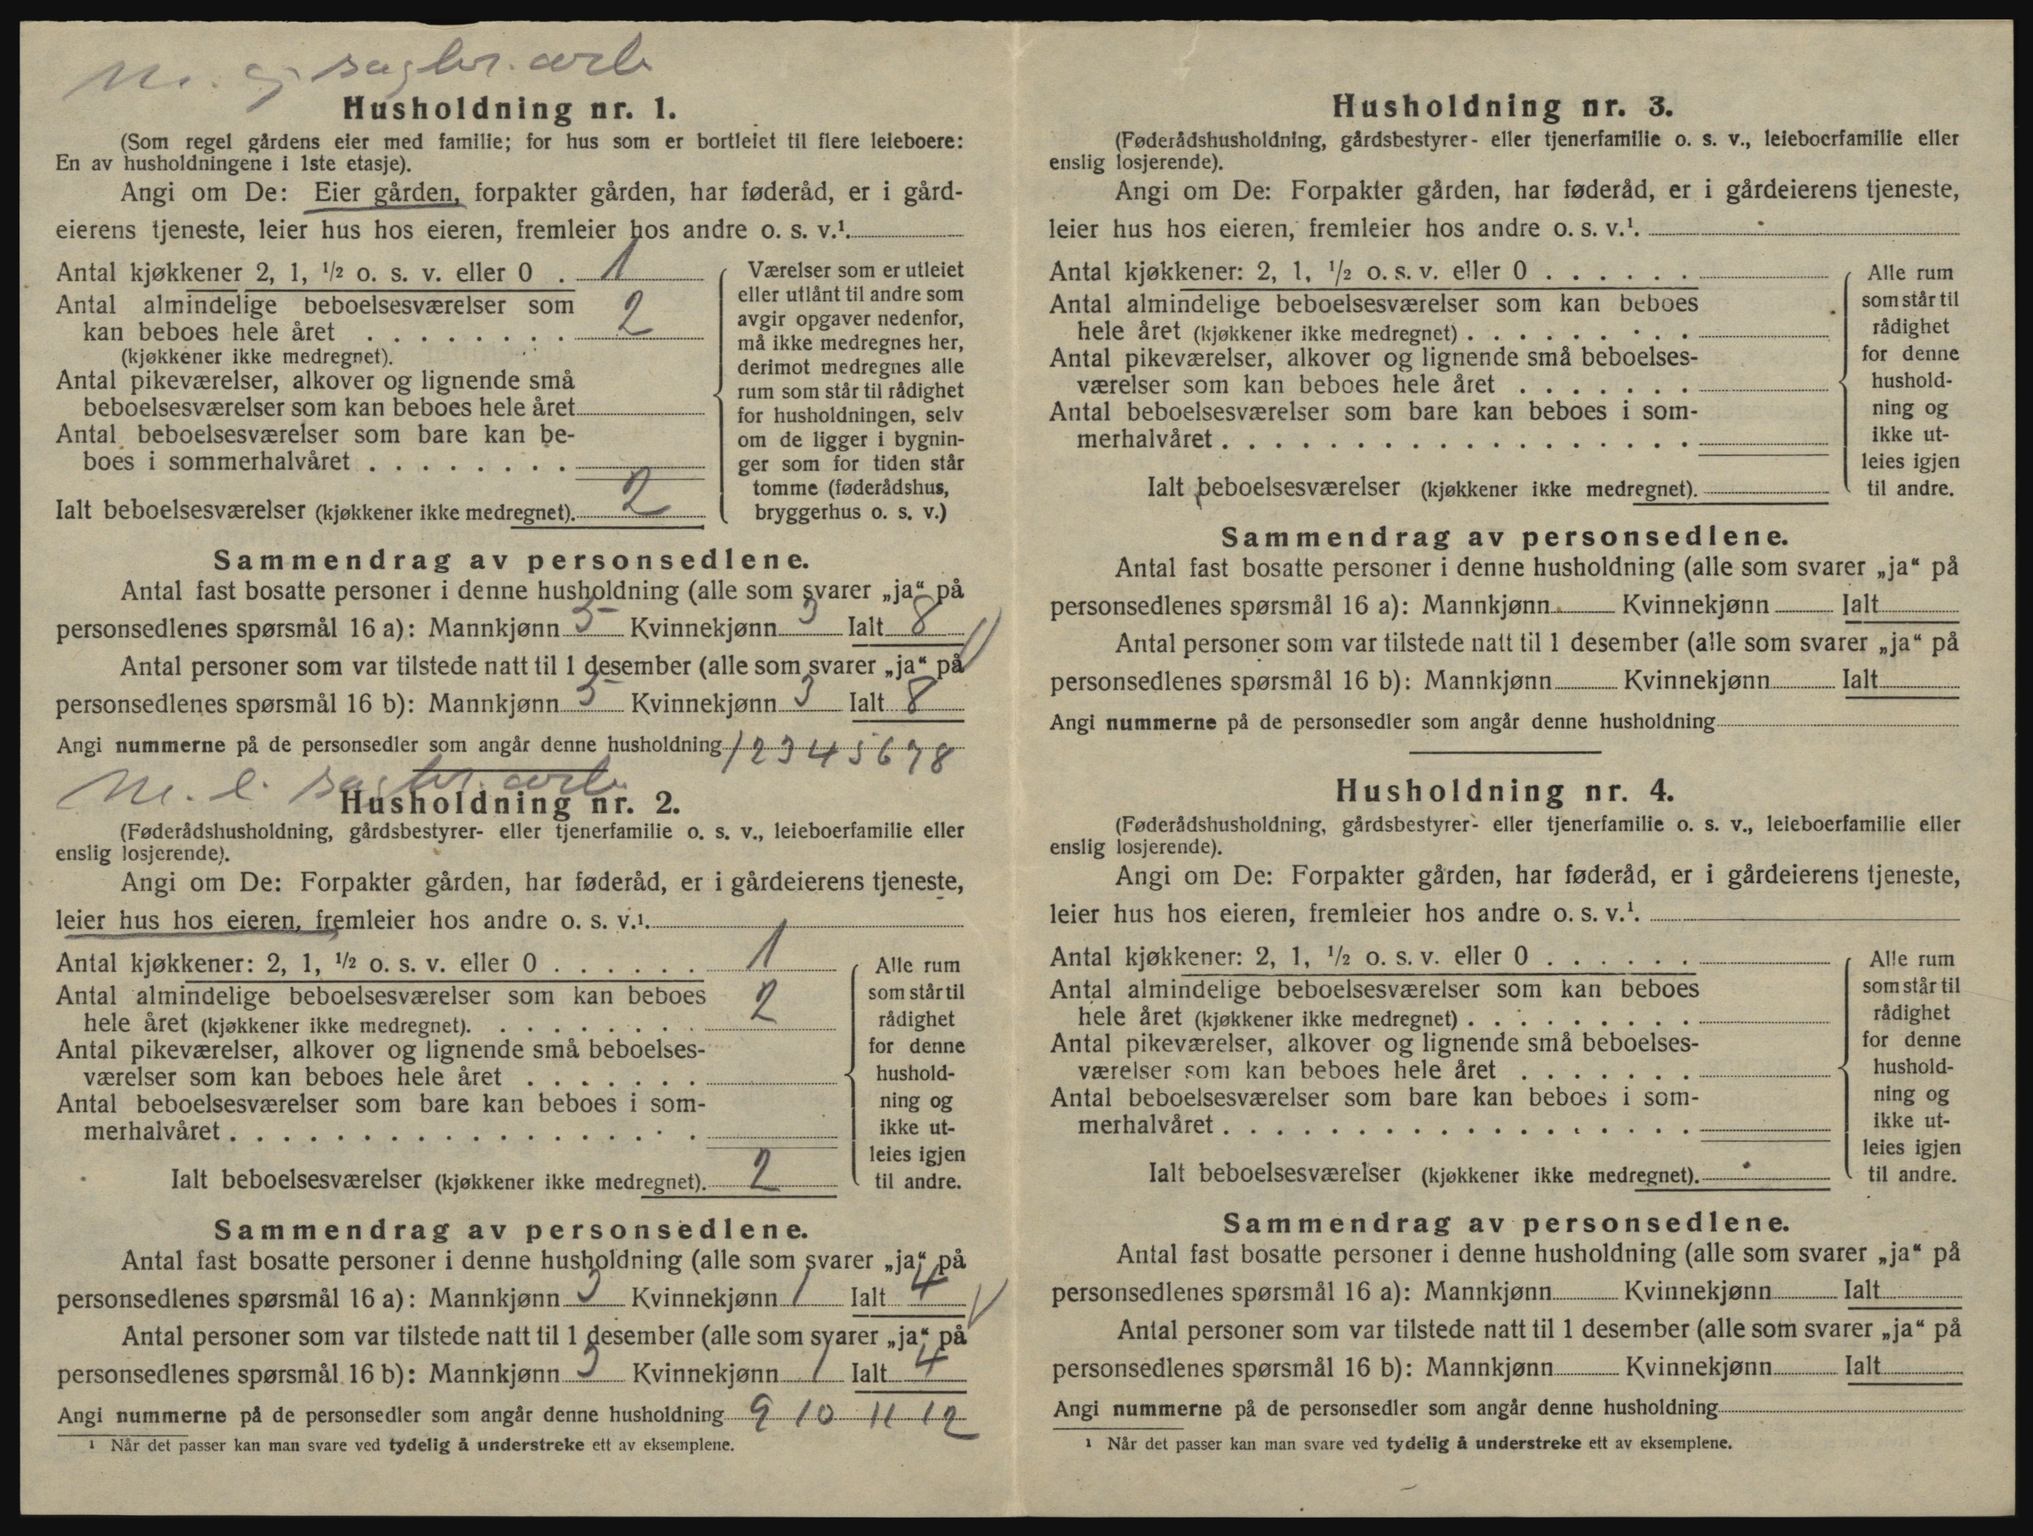 m. ej sagbr. arb
Husholdning nr. 1.
(Som regel gårdens eier med familie; for hus som er bortleiet til flere leieboere:
En av husholdningene i 1ste etasje).
Angi om De: Eier gården, forpakter gården, har føderåd, er i gård-
eierens tjeneste, leier hus hos eieren, fremleier hos andre o. s. v.¹.
Antal kjøkkener 2, 1, ½ o. s. v. eller 0 . 1
Antal almindelige beboelsesværelser som
kan beboes hele året . . . . . . . . 2
(kjøkkener ikke medregnet).
Antal pikeværelser, alkover og lignende små
beboelsesværelser som kan beboes hele året
Antal beboelsesværelser som bare kan be-
boes i sommerhalvåret . . . . . . . .
Ialt beboelsesværelser (kjøkkener ikke medregnet). 2
Værelser som er utleiet
eller utlånt til andre som
avgir opgaver nedenfor,
må ikke medregnes her,
derimot medregnes alle
rum som står til rådighet
for husholdningen, selv
om de ligger i bygnin-
ger som for tiden står
tomme (føderådshus,
bryggerhus o. s. v.)
Sammendrag av personsedlene.
Antal fast bosatte personer i denne husholdning (alle som svarer „ja“ på
personsedlenes spørsmål 16 a): Mannkjønn 5 Kvinnekjønn 3 Ialt 8
Antal personer som var tilstede natt til 1 desember (alle som svarer „ja“ på
personsedlenes spørsmål 16 b): Mannkjønn 5 Kvinnekjønn 3 Ialt 8
Angi nummerne på de personsedler som angår denne husholdning 1 2 3 4 5 6 7 8
m. l. sagbr. arb
Husholdning nr. 2.
(Føderådshusholdning, gårdsbestyrer- eller tjenerfamilie o. s. v., leieboerfamilie eller
enslig losjerende).
Angi om De: Forpakter gården, har føderåd, er i gårdeierens tjeneste,
leier hus hos eieren, fremleier hos andre o. s. v.¹.
Antal kjøkkener: 2, 1, ½ o. s. v. eller 0 . . . . . . 1
Antal almindelige beboelsesværelser som kan beboes
hele året (kjøkkener ikke medregnet). . . . . . . . . 2
Antal pikeværelser, alkover og lignende små beboelses-
værelser som kan beboes hele året . . . . . . .
Antal beboelsesværelser som bare kan beboes i som-
merhalvåret . . . . . . . . . . . . . . . . . .
Ialt beboelsesværelser (kjøkkener ikke medregnet). 2
Alle rum
som står til
rådighet
for denne
hushold-
ning og
ikke ut-
leies igjen
til andre.
Sammendrag av personsedlene.
Antal fast bosatte personer i denne husholdning (alle som svarer „ja“ på
personsedlenes spørsmål 16 a): Mannkjønn 3 Kvinnekjønn 1 Ialt 4
Antal personer som var tilstede natt til 1 desember (alle som svarer „ja“ på
personsedlenes spørsmål 16 b): Mannkjønn 3 Kvinnekjønn 1 Ialt 4
Angi nummerne på de personsedler som angår denne husholdning 9 10 11 12
¹ Når det passer kan man svare ved tydelig å understreke ett av eksemplene.
Husholdning nr. 3.
(Føderådshusholdning, gårdsbestyrer- eller tjenerfamilie o. s. v., leieboerfamilie eller
enslig losjerende).
Angi om De: Forpakter gården, har føderåd, er i gårdeierens tjeneste,
leier hus hos eieren, fremleier hos andre o. s. v.¹.
Antal kjøkkener: 2, 1, ½ o. s. v. eller 0 . . . . . .
Antal almindelige beboelsesværelser som kan beboes
hele året (kjøkkener ikke medregnet) . . . . . . . . .
Antal pikeværelser, alkover og lignende små beboelses-
værelser som kan beboes hele året . . . . . . .
Antal beboelsesværelser som bare kan beboes i som-
merhalvåret . . . . . . . . . . . . . . . . . .
Ialt beboelsesværelser (kjøkkener ikke medregnet).
Alle rum
som står til
rådighet
for denne
hushold-
ning og
ikke ut-
leies igjen
til andre.
Sammendrag av personsedlene.
Antal fast bosatte personer i denne husholdning (alle som svarer „ja“ på
personsedlenes spørsmål 16 a): Mannkjønn Kvinnekjønn Ialt
Antal personer som var tilstede natt til 1 desember (alle som svarer „ja“ på
personsedlenes spørsmål 16 b): Mannkjønn Kvinnekjønn Ialt
Angi nummerne på de personsedler som angår denne husholdning
Husholdning nr. 4.
(Føderådshusholdning, gårdsbestyrer- eller tjenerfamilie o. s. v., leieboerfamilie eller
enslig losjerende).
Angi om De: Forpakter gården, har føderåd, er i gårdeierens tjeneste,
leier hus hos eieren, fremleier hos andre o. s. v.¹.
Antal kjøkkener: 2, 1, ½ o. s. v. eller 0 . . . . . .
Antal almindelige beboelsesværelser som kan beboes
hele året (kjøkkener ikke medregnet) . . . . . . . . .
Antal pikeværelser, alkover og lignende små beboelses-
værelser som kan beboes hele året . . . . . . .
Antal beboelsesværelser som bare kan beboes i som-
merhalvåret . . . . . . . . . . . . . . . . . .
Ialt beboelsesværelser (kjøkkener ikke medregnet).
Alle rum
som står til
rådighet
for denne
hushold-
ning og
ikke ut-
leies igjen
til andre.
Sammendrag av personsedlene.
Antal fast bosatte personer i denne husholdning (alle som svarer „ja“ på
personsedlenes spørsmål 16 a): Mannkjønn Kvinnekjønn Ialt
Antal personer som var tilstede natt til 1 desember (alle som svarer „ja“ på
personsedlenes spørsmål 16 b): Mannkjønn Kvinnekjønn Ialt
Angi nummerne på de personsedler som angår denne husholdning
¹ Når det passer kan man svare ved tydelig å understreke ett av eksemplene.